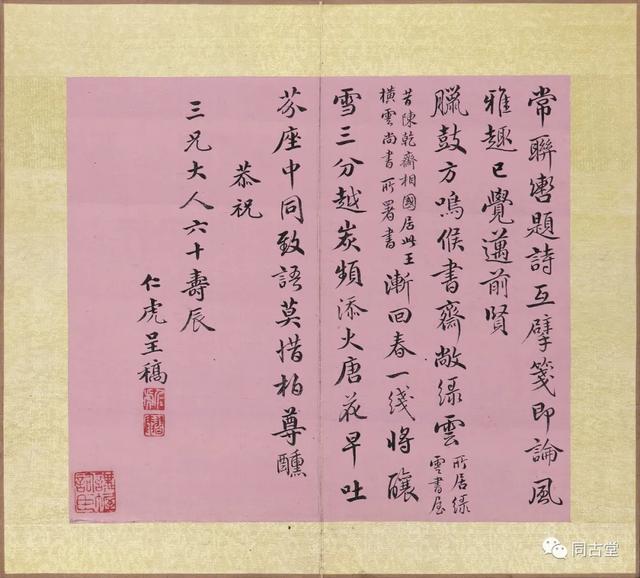 常聯轡題詩互擘箋即論風
雅趣已覺邁前賢
臘鼓方鳴候書齋敞綠雲所居綠雲書屋
昔陳乾齋相國居此王橫雲尚書所署書漸回春一綫將釀
雪三分越炭頻添火唐花早吐
芬座中同致語莫惜柏尊醺
恭祝
三兄大人六十壽辰
仁虎呈稿
同古堂